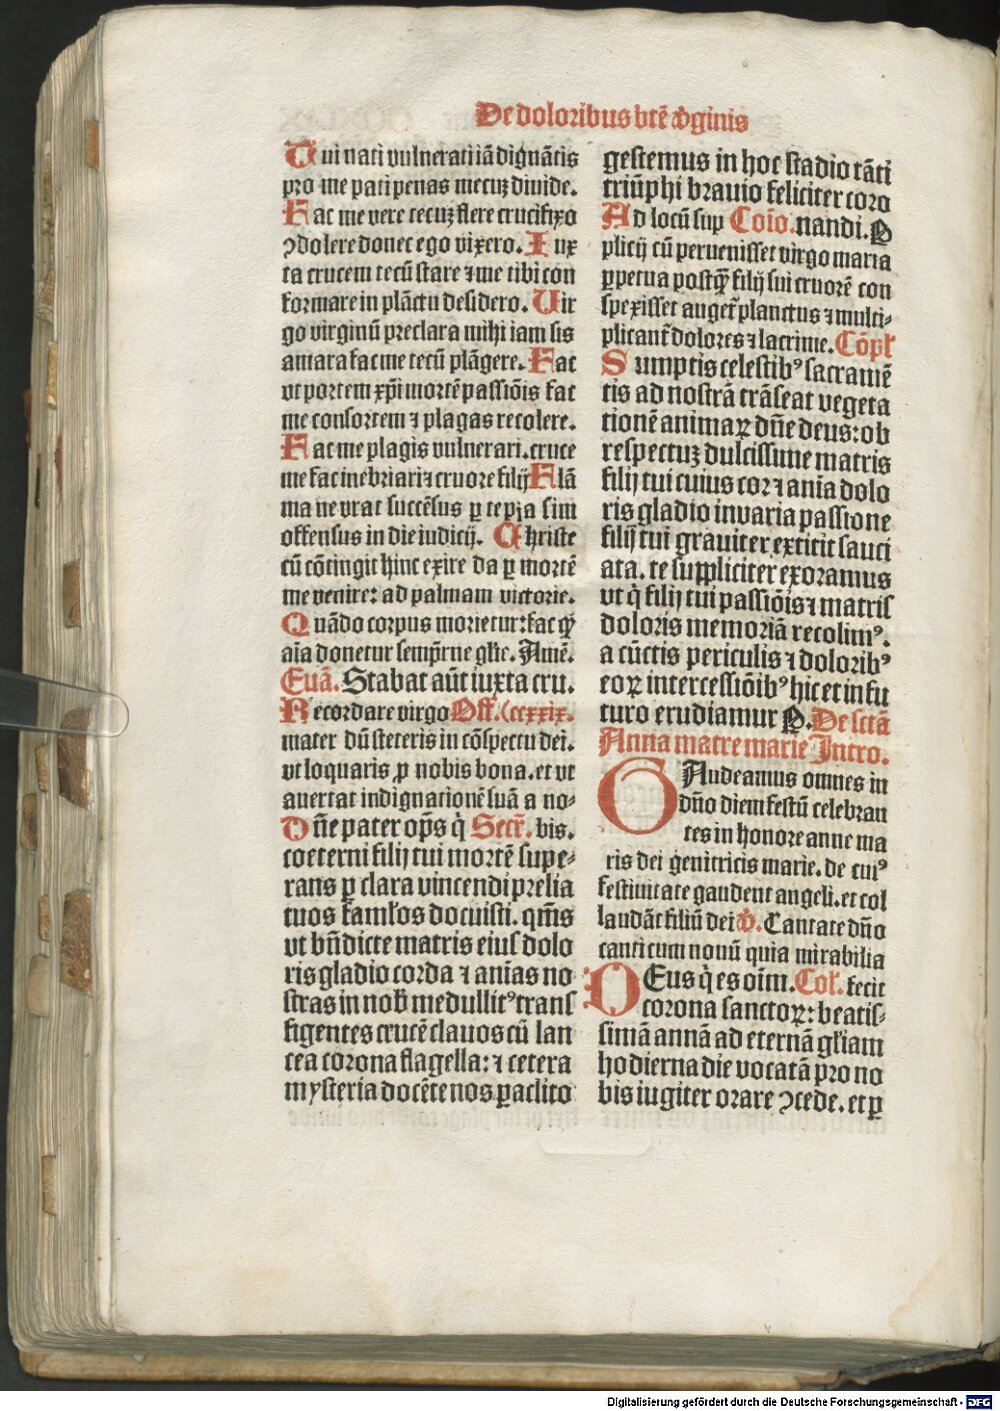 De doloribus btē v̄ginis
Tui nati vulnerati iā dignātis
pro me pati penas mecuꝫ diuide.
Fac me vere tecuꝫ flere crucifixo
ꝯdolere donec ego vixero. Iux
ta crucem tecū stare ⁊ me tibi con
formare in plāctu desidero. Uir
go virginū preclara mihi iam sis
amara fac me tecū plāgere. Fac
vt portem xp̄i mortē passiōis fac
me consortem ⁊ plagas recolere.
Fac me plagis vulnerari. cruce
me fac inebriari ⁊ cruore filij Flā
ma ne vrat succēsus ꝑ te pia sim
offensus in die iudicij. Christe
cū cōtingit hinc exire da ꝑ mortē
me venire: ad palmam victorie.
Quādo corpus morietur: fac qꝫ
aīa donetur semp̄rne gl̄ie. Amē.
Euā. Stabat aūt iuxta cru.
Recordare virgo Off. (ccxxix.
mater dū steteris in cōspectu dei.
vt loquaris ꝓ nobis bona. et vt
auertat indignationē suā a no-
Dn̄e pater op̄s q̇ Secr̄. bis.
coeterni filij tui mortē supe-
rans ꝑ clara vincendi prelia
tuos famƚos docuisti. qm̄s
vt bn̄dicte matris eius dolo
ris gladio corda ⁊ anīas no
stras in nob̄ medullitꝰ trans
figentes crucē clauos cū lan
cea corona flagella: ⁊ cetera
mysteria docēte nos paclito
gestemus in hoc stadio tāti
triūphi brauio feliciter coro
Ad locū sup Coīo. nandi. P
plicij cū peruenisset virgo maria
ꝑpetua postqꝫ filij sui cruorē con
spexisset augeƭ planctus ⁊ multi-
plicanƭ dolores ⁊ lacrime. Cōpƚ
Sumptis celestibꝰ sacramē
tis ad nostrā trāseat vegeta
tionē animaꝝ dn̄e deus: ob
respectuꝫ dulcissime matris
filij tui cuius cor ⁊ anīa dolo
ris gladio in varia passione
filij tui grauiter extitit sauci
ata. te suppliciter exoramus
vt q̇ filij tui passiōis ⁊ matris
doloris memoriā recolimꝰ.
a cūctis periculis ⁊ doloribꝰ
eoꝝ intercessiōibꝰ hic et in fu
turo erudiamur P. De sctā
Anna matre marie Intro.
GAudeamus omnes in
dn̄o diem festū celebran
tes in honore anne ma
ris dei genitricis marie. de cuiꝰ
festiuitate gaudent angeli. et col
laudāt filiū dei v̄. Cantate dn̄o
canticum nouū quia mirabilia
DEus q̇ es oīm. Coƚ. fecit
corona sanctoꝝ: beatis-
simā annā ad eternā gƚiam
hodierna die vocatā pro no
bis iugiter orare ꝯcede. et ꝑ
Digitalisierung gefördert durch die Deutsche Forschungsgemeinschaft - DFG